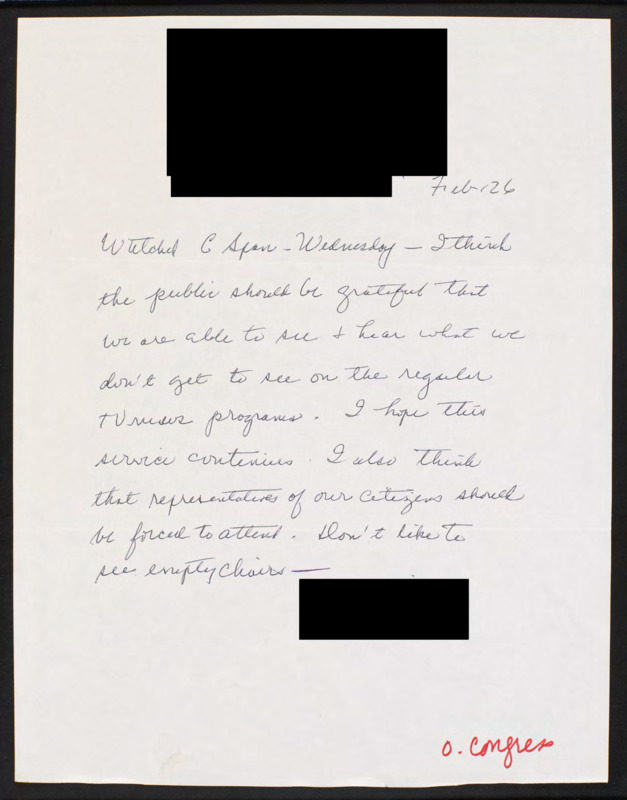 Feb. 26
Watched C Span - Wednesday - I think
the public should be grateful that
we are able to see & hear what we
don't get to see on the regular
TV news programs. I hope this
service continues. I also think
that representatives of our citizens should
be forced to attend. Don't like to
see empty chairs —
O. Congress